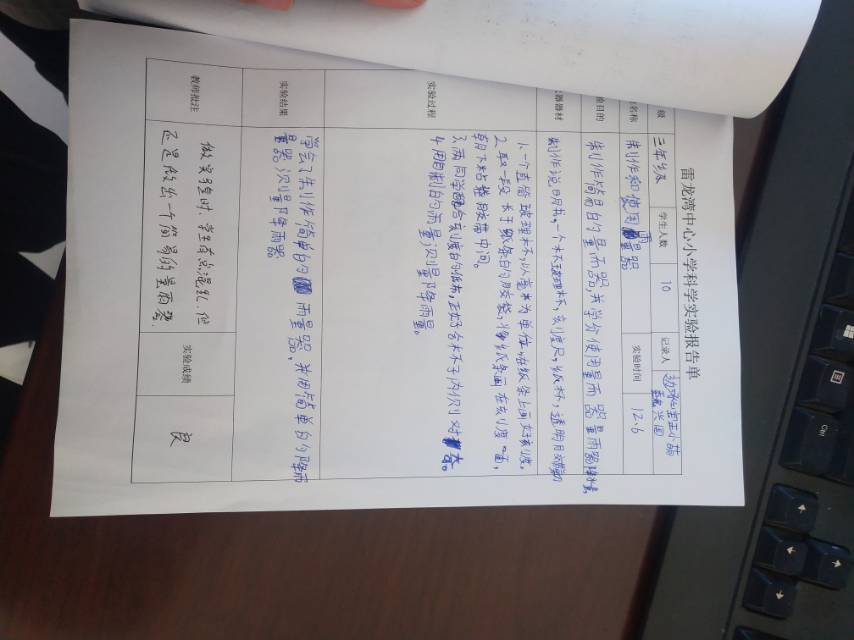 雷龙湾中心小学科学实验报告单
级 三年级 学生人数 10 记录人
王小茹
兴国
名称 制作和使用雨量器 实验时间 12.6
验目的 制作简易的量雨器,并学会使用量雨器量雨
器器材 制作说明书,一个 玻璃杯,刻度尺,纸杯,透明胶带
实验过程
1.一个直 玻璃杯,以毫米为单位,在纸条上画好刻度。
2.取一段长于纸条的胶带,将纸条画在刻度 面,
朝下粘在胶带中间。
3.两同学配合 刻度的纸 ,正好 杯子内侧对齐。
4.用自制的雨量 测量降雨量。
实验结果
学会了制作简单的雨量器,并用简单的降雨
量器测量降雨
教师批注
做实验时,学生有点混乱,但
还是做出一个简易的量雨器。
实验成绩 良